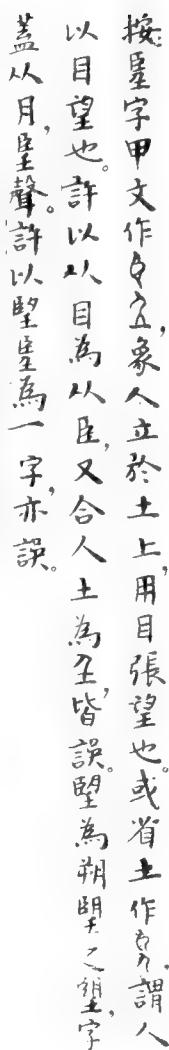 按𦣠字甲文作，象人立於土上，用目張望也。或省土作，謂人
以目望也。許以从目為从臣，又合人土為𡈼，皆誤。朢為朔朢之朢，字
蓋从月，𦣠聲。許以朢𦣠為一字，亦誤。